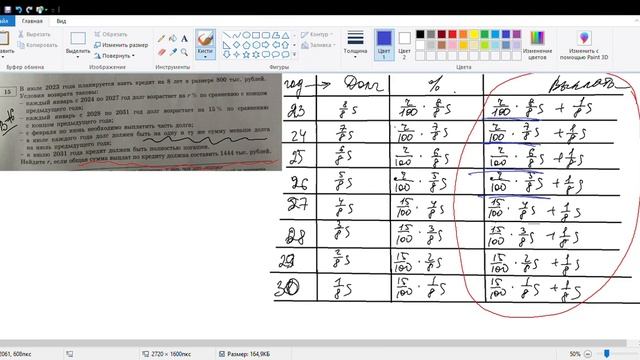 Файл Главная Вид
Вырезать
Копировать
Обрезать
Изменить размер
Повернуть
Выделить
Кисти
Контур
Заливка
Толщина
Цвет 1
Цвет 2
Изменение цветов
Изменить с помощью Paint 3D
Буфер обмена
Изображение
Инструменты
Фигуры
Цвета
15
В июле 2023 года планируется взять кредит на 8 лет в размере 800 тыс. рублей.
Условия возврата таковы:
- каждый январь с 2024 по 2027 год долг возрастает на r % по сравнению с концом
предыдущего года;
- каждый январь с 2028 по 2031 год долг возрастает на 15 % по сравнению
с концом предыдущего года;
- с февраля по июнь необходимо выплатить часть долга;
- в июле каждого года долг должен быть на одну и ту же сумму меньше долга
на июль предыдущего года;
- к июлю 2031 года кредит должен быть полностью погашен.
Найдите r, если общая сумма выплат по кредиту должна составить 1444 тыс. рублей.
год Долг % Выплата
23 8/8 S r/100 · 8/8 S r/100 · 8/8 S + 1/8 S
24 7/8 S r/100 · 7/8 S r/100 · 7/8 S + 1/8 S
25 6/8 S r/100 · 6/8 S r/100 · 6/8 S + 1/8 S
26 5/8 S r/100 · 5/8 S r/100 · 5/8 S + 1/8 S
27 4/8 S 15/100 · 4/8 S 15/100 · 4/8 S + 1/8 S
28 3/8 S 15/100 · 3/8 S 15/100 · 3/8 S + 1/8 S
29 2/8 S 15/100 · 2/8 S 15/100 · 2/8 S + 1/8 S
30 1/8 S 15/100 · 1/8 S 15/100 · 1/8 S + 1/8 S
2061, 608пкс
2720 × 1600пкс
Размер: 164,9КБ
50%